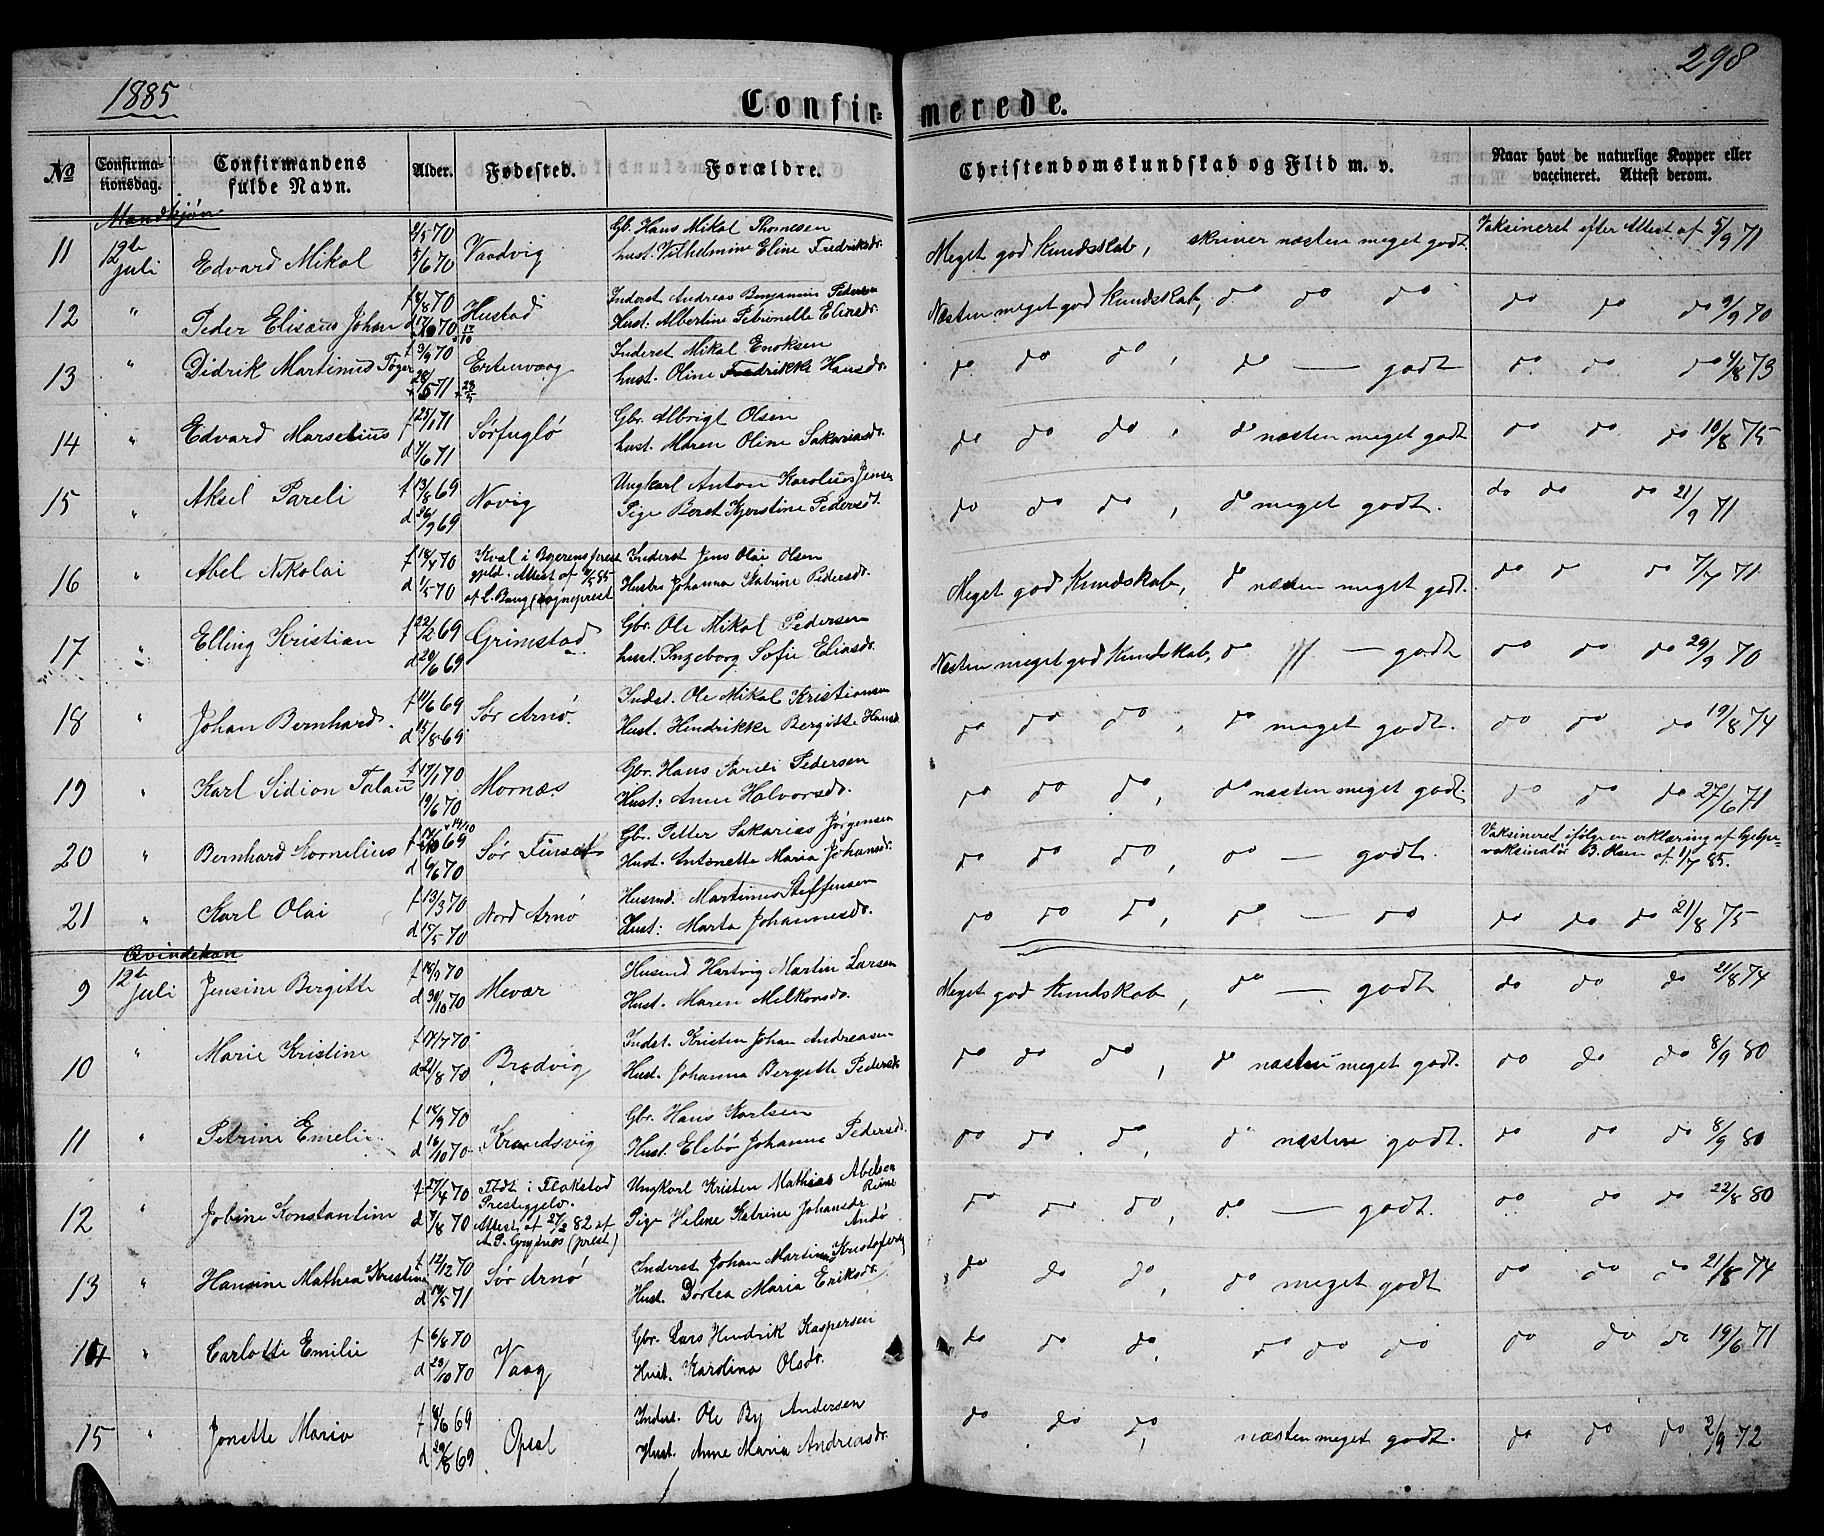 1885
298
Confir=
merede.
No
Confirma-
tionsdag.
Confirmandens
fulde Navn.
Alder.
Fødested.
Forældre.
Christendomskundskab og Flid m. v.
Naar havt de naturlige Kopper eller
vaccineret. Attest derom.
Mandkjøn
11 12te Juli Edvard Mikal 5/6 70 Vaadvig Gb. Hans Mikal Thomesen
hust. Vilhelmine Eline Fredriksdr.
Meget god Kundskab, skriver næsten meget godt Vaksineret efter Attest af 5/9 71
12 " Peder Elisæus Johan f 70 d 70 Hustad Inderst Andreas Benjamin Pedersen
Hust: Albertine Petronelle Eliasdr.
Næsten meget god Kundskab, do do do do do do 9/9 70
13 " Didrik Martinus Tøger f 3/9 70 71 Ertenvaag Inderst Mikal Enoksen
hust. Oline Fredrikke Hansdr.
do do do, do — godt do do do 4/8 73
14 " Edvard Marselius f 25/1 71 d 4/6 71 Sørfuglø Gbr. Albrigt Olsen
hust. Maren Oline Sakariasdr.
do do do, do næsten meget godt do do do 10/8 75
15 " Aksel Pareli f 13/8 69 d 26/9 69 Novig Ungkarl Anton Karolius Jensen
Pige Beret Kjerstine Pedersdt.
do do do, do meget godt. do do do 21/9 71
16 " Abel Nikolai f 18/4 70 d 1/5 70 Kval i Bjerens prest
gjeld. Attest af 85
af L. Bang (sogneprest Inderst Jens Olai Olsen
Hustru Johanna Katrine Pedersdr.
Meget god Kundskab, do næsten meget godt. do do do 7/7 71
17 " Elling Kristian f 22/2 69 d 20/6 69 Grimstad Gbr. Ole Mikal Pedersen
hust. Ingeborg Sofie Eliasdr.
Næsten meget god Kundskab, do " — godt do do do 29/9 70
18 " Johan Bernhard. f 11/6 69 d 15/8 69 Sør Arnø. Indst. Ole Mikal Kristiansen
Hust. Hendrikke Bergitte Hansdr
do do do, do meget godt. do do do 19/8 74
19 " Karl Sidion Talau f 17/1 70 19/6 70 Mornæs Gbr. Hans Pareli Pedersen
Hust: Anne Halvorsdr.
do do do, do næsten meget godt. do do do 27/6 71
20 " Bernhard Kornelius f 69 d 9/6 70 Sør Finset Gbr. Petter Sakarias Jørgensen
Hust. Antonette Maria Johansdr.
do do do, do — godt. Vaksineret ifølge en erklæring af hjelpe-
vaksinatør B. Olsen af 1/7 85.
21 " Karl Olai f 13/3 70 d 17/5 70 Nord Arnø Husmd. Martinus Steffensen
Hust: Marta Johannesdr.
do do do, do — do do do do 21/8 75
Qvindekøn
9 12te Juli Jensine Bergitte f 18/9 70 d 30/10 70 Mevær Husmd Hartvig Martin Larsen
Hust. Maren Melkorsdr.
Meget god Kundskab, do — godt do do do 21/8 74
10 " Marie Kristine f 17/7 70 d 21/8 70 Bredvig Indst. Kristen Johan Andreasen
Hust. Johanna Bergette Pedersdr
do do do, do næsten meget godt. do do do 8/9 80
11 " Petrine Emelie f 18/9 70 d 16/10 70 Krandsvig Gbr. Hans Karlsen
Hust. Elebø Johanne Pedersdr.
do do do, do næsten godt. do do do 8/9 80
12 " Jobine Konstantine f 27/4 70 d 7/8 70 Født i Flakstad
Prestegjeld.
Attest af 27/2 82 af
A. P. Grytnes (prest) Ungkarl Kristen Mathias Abelsen Reine
Pige Helene Katrine Johansdr Andø
do do do, do — godt. do do do 22/8 80
13 " Hansine Mathea Kristine f 12/12 70 d 14/5 71 Sør Arnø Inderst Johan Martin Kristofersen
Hust. Dortea Maria Eriksdr.
do do do, do meget godt do do do 21/8 74
14 " Carlotte Emilie f 6/8 70 d 23/10 70 Vaag Gbr. Lars Hendrik Kaspersen
Hust. Karolina Olsdr.
do do do, do do do do do do 19/6 71
15 " Jonette Maria f 8/6 69 d 29/8 69 Opsal Inderst. Ole By Andersen
Hust. Anne Maria Andreasdr.
do do do, næsten meget godt. do do do 2/9 72